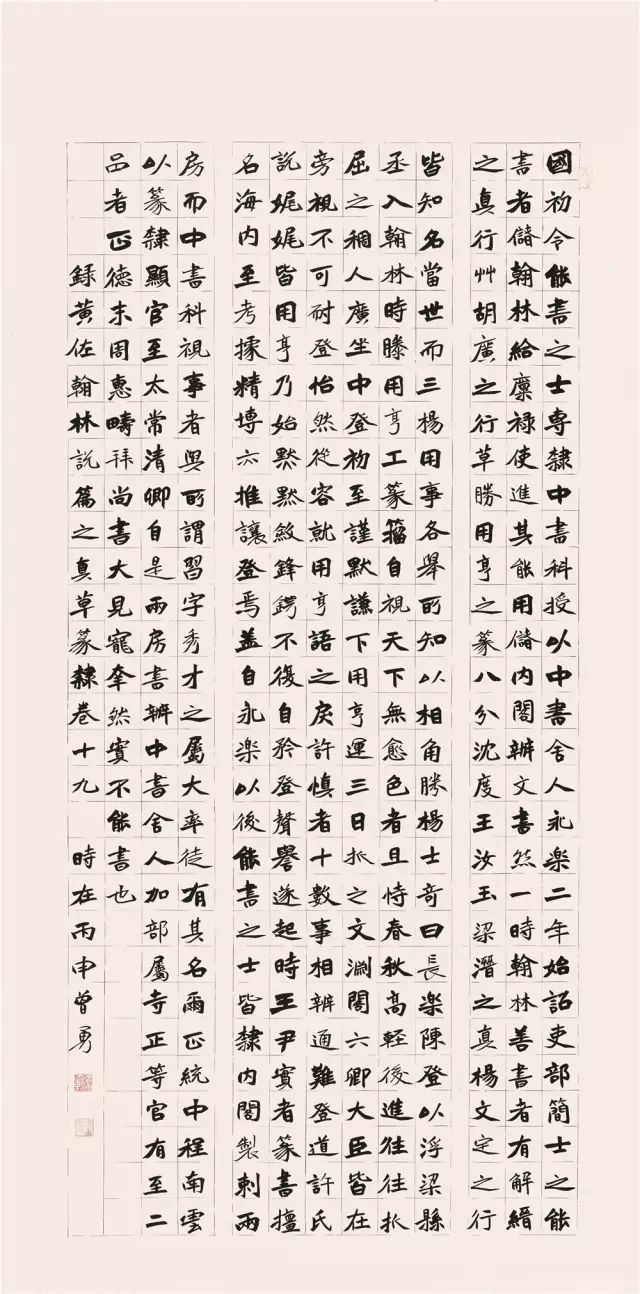 國初令能書之士專隸中書科授以中書舍人永樂二年始詔吏部簡士之能
書者儲翰林給廩祿使進其能用儲内閣辦文書然一時翰林善書者有解縉
之真行艸胡廣之行草勝用亨之篆八分沈度王汝玉梁潛之真楊文定之行
皆知名當世而三楊用事各舉所知以相角勝楊士奇曰長樂陳登以浮梁縣
丞入翰林時滕用亨工篆籀自視天下無愈色者且恃春秋高輕後進往往
屈之稠人廣坐中登初至謹默謙下用亨運三日之文淵閣六卿大臣皆在
旁視不可耐登怡然從容就用亨語之戾許慎者十數事相辨通難登道許氏
說娓娓皆用亨乃始默默斂鋒鍔不復自矜登聲譽遂起時王尹實者篆書擅
名海内至考據精博亦推讓登焉蓋自永樂以後能書之士皆隸内閣製兩
房而中書科視事者與所謂習字秀才之屬大率徒有其名爾正統中程南雲
以篆隸顯官至太常清卿自是兩房書辦中書舍人加部屬寺正等官有至二
品者正德末周惠疇拜尚書大見寵幸然實不能書也
錄黃佐翰林說篇之真草篆隸卷十九 時在丙申曾勇